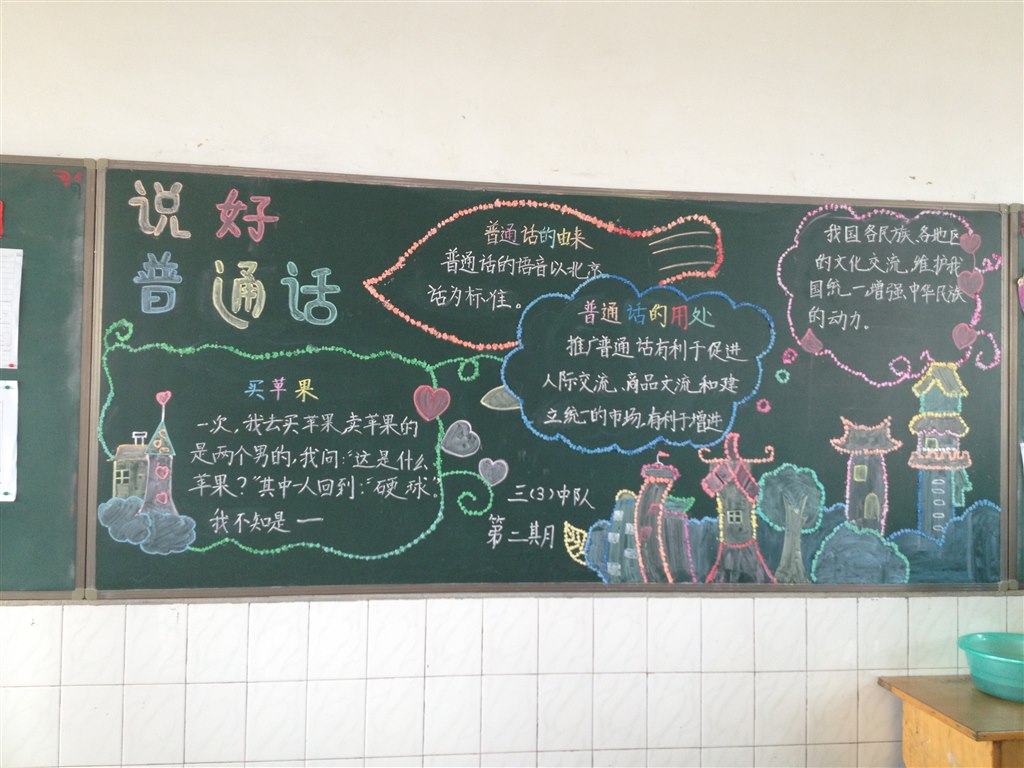 说好
普通话
普通话的由来
普通话的语音以北京
话为标准。
普通话的用处
推广普通话有利于促进
人际交流、商品交流和建
立统一的市场,有利于增进
我国各民族、各地区
的文化交流,维护我
国统一,增强中华民族
的动力。
买苹果
一次,我去买苹果,卖苹果的
是两个男的,我问:“这是什么
苹果?”其中一人回到:“硬球”。
我不知是一
三(3)中队
第二期月